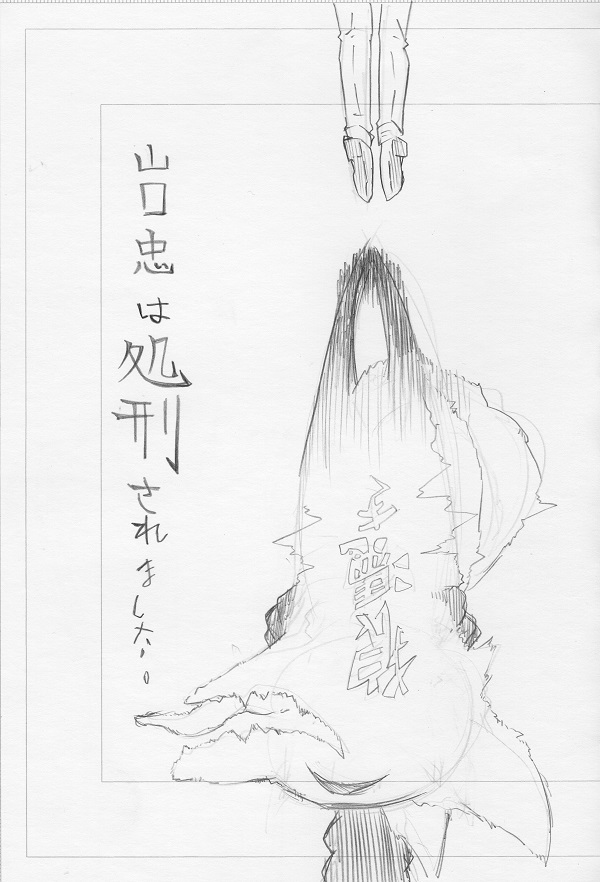 山口忠は処刑されました。